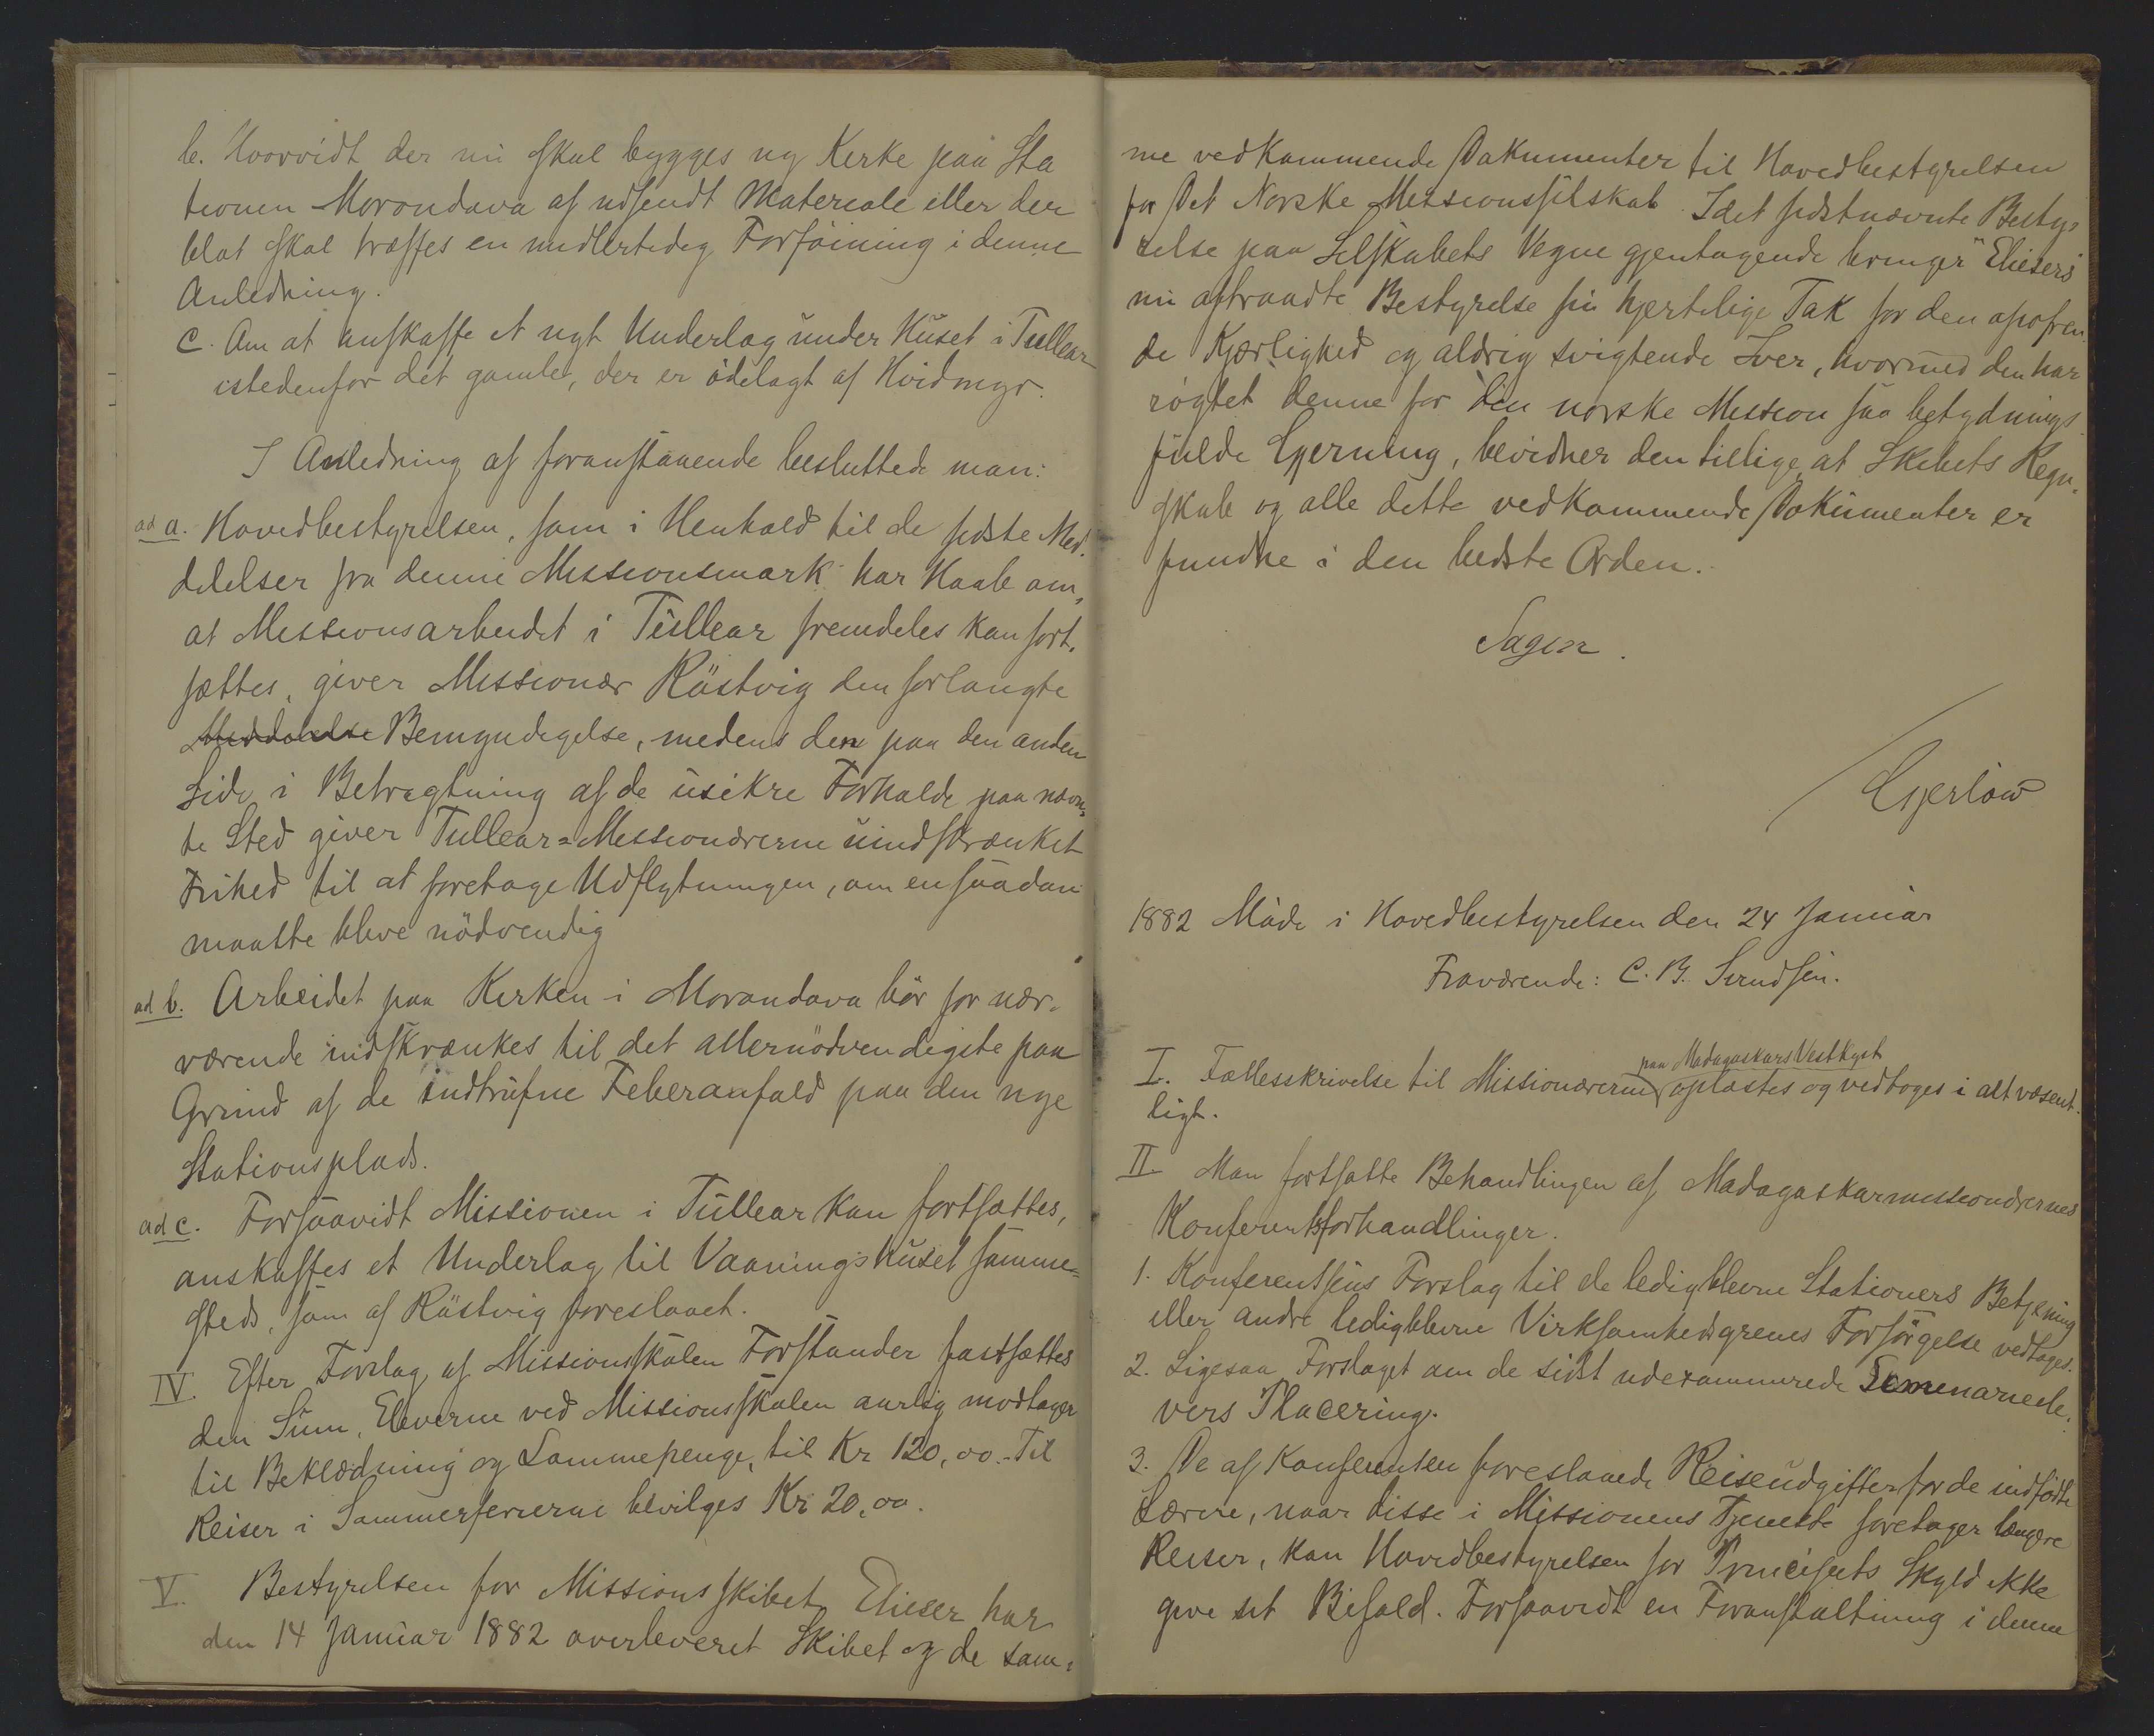 b. Hvorvidt der nu skal bygges ny Kirke paa Sta
tionen Morondava af udsendt Materiale eller der
blot skal træffes en midlertidig Forføining i denne
Anledning.
C. Om at anskaffe et nyt Underlag under Huset i Tullear
istedenfor det gamle, der er ødelagt af Hvidmyr.
I Anledning af foranstaaende besluttede man:
ad a. Hovedbestyrelsen, som i Henhold til de sidste Med-
delelser fra denne Missionsmark har Haab om,
at Missionsarbeidet i Tullear fremdeles kan fort-
sættes, giver Missionær Röstvig den forlangte
Meddelelse Bemyndigelse, medens den paa den anden
Side i Betragtning af de usikre Forholde paa nævn-
te Sted giver Tullear-Missionærerne uindskrænket
Frihed til at foretage Udflytningen, om en saadan
maatte blive nödvendig
ad b. Arbeidet paa Kirken i Morondava bör for nær-
værende indskrænkes til det allernödvendigste paa
Grund af de indtrufne Feberanfald paa den nye
Stationsplads.
ad c. Forsaavidt Missionen i Tullear kan fortsættes,
anskaffes et Underlag til Vaaningshuset samme-
steds, som af Röstvig foreslaaet.
IV. Efter Forslag af Missionsskolen Forstander fastsættes
den Sum, Eleverne ved Missionsskolen aarlig modtager
til Beklædning og Lommepenge, til Kr 120,00.- Til
Reiser i Sommerferierne bevilges Kr 20,00.
V. Bestyrelsen for Missionsskibet Elieser har
den 14 Januar 1882 overleveret Skibet og de sam-
me vedkommende Dokumenter til Hovedbestyrelsen
for Det Norske Missionsselskab. Idet sidstnævnte Besty-
relse paa Selskabets Vegne gjentagende bringer "Eliesers"
nu aftraadte Bestyrelse sin hjertelige Tak for den opofren-
de Kjærlighed og aldrig svigtende Iver, hvormed den har
røgtet denne for den norske Mission saa betydnings-
fulde Gjerning, bevidner den tillige, at Skibets Regn-
skab og alle dette vedkommende Dokumenter er
fundne i den bedste Orden.
Sagen.
Gjerløw
1882 Møde i Hovedbestyrelsen den 24 Januar
Fraværende: C. B. Svendsen.
paa Madagaskars Vestkyst
I. Fællesskrivelse til Missionærerne oplæstes og vedtoges i alt væsent-
ligt.
II. Man fortsatte Behandlingen af Madagaskarmissionærernes
Konferentsforhandlinger.
1. Konferentsens Forslag til de ledigblevne Stationers Betjening
eller andre ledigblevne Virksomhedsgrenes Forsørgelse vedtoges.
2. Ligesaa Forslaget om de sidst udexaminerede Seminarieele-
vers Placering.
3. De af Konferentsen foreslaaede Reiseudgifter for de indfødte
Lærere, naar disse i Missionens Tjeneste foretager længere
Reiser, kan Hovedbestyrelsen for Principets Skyld ikke
give sit Bifald. Forsaavidt en Foranstaltning i denne